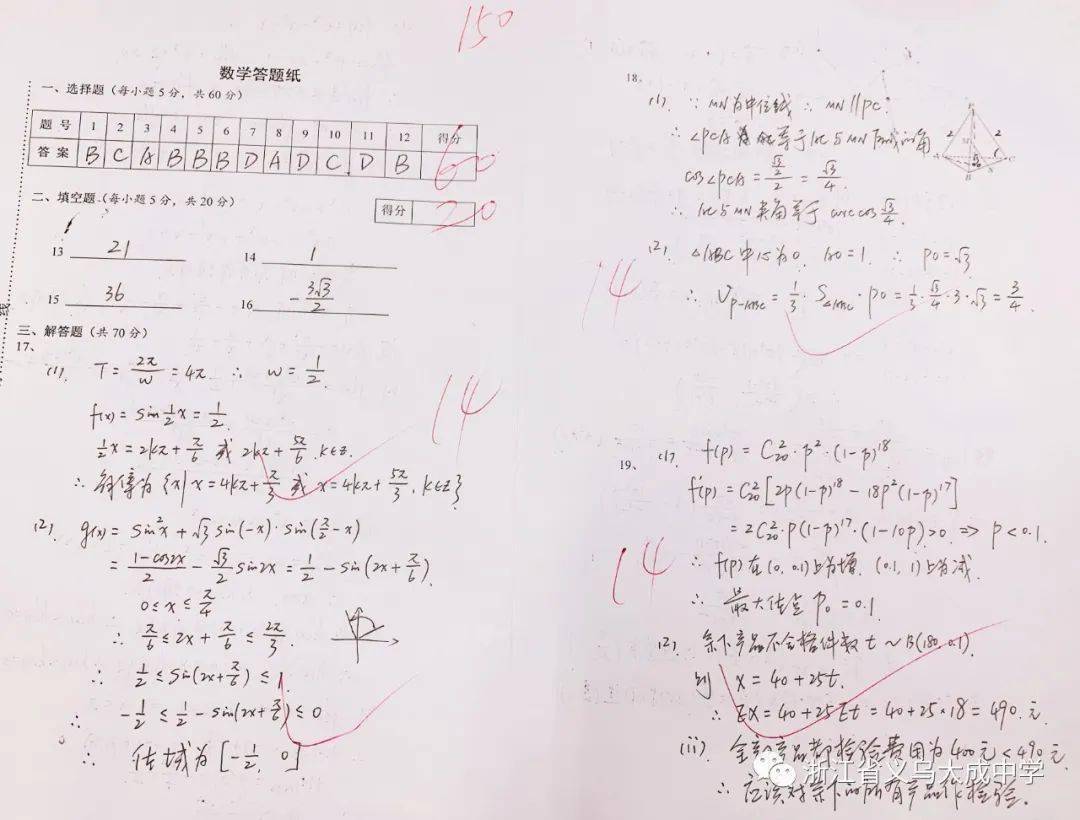 150
数学答题纸
一、选择题（每小题5分，共60分）
题号 1 2 3 4 5 6 7 8 9 10 11 12 得分
答案 B C A B B B D A D C D B 60
二、填空题（每小题5分，共20分）
得分 20
13 21 14 1
15 36 16 -3√3/2
三、解答题（共70分）
17、
(1). T = 2π/w = 4π. ∴ w = 1/2.
f(x) = sin 1/2 x = 1/2.
1/2 x = 2kπ + π/6 或 2kπ + 5π/6. k∈Z.
∴ 解集为 {x| x = 4kπ + π/3 或 x = 4kπ + 5π/3, k∈Z}
14
(2). g(x) = sin²x + √3 sin(-x)·sin(π/2 - x)
= (1-cos2x)/2 - √3/2 sin2x = 1/2 - sin(2x + π/6).
0 ≤ x ≤ π/4
∴ π/6 ≤ 2x + π/6 ≤ 2π/3.
∴ 1/2 ≤ sin(2x + π/6) ≤ 1.
∴ -1/2 ≤ 1/2 - sin(2x + π/6) ≤ 0
∴ 值域为 [-1/2, 0]
18、
(1). ∵ MN为中位线 ∴ MN∥PC.
∴ ∠PCA 等于AC与MN所成的角
cos∠PCA = (√3/2)/2 = √3/4.
∴ AC与MN夹角等于 arccos √3/4.
(2). △ABC中心为O. AO=1. ∴ PO=√3
∴ V_P-ABC = 1/3·S△ABC·PO = 1/3·√3/4·3·√3 = 3/4.
14
19、
(1). f(p) = C₂₀²·p²·(1-p)¹⁸
f'(p) = C₂₀²[2p(1-p)¹⁸ - 18p²(1-p)¹⁷]
= 2C₂₀²·p(1-p)¹⁷·(1-10p) > 0 ⇒ p < 0.1.
∴ f(p)在(0, 0.1)上为增, (0.1, 1)上为减.
∴ 最大值点 p₀ = 0.1
14
(2). 余下产品不合格件数 t ~ B(180, 0.1).
则 X = 40 + 25t.
∴ EX = 40 + 25Et = 40 + 25×18 = 490.元.
(ii) 全部产品都检验费用为400元 < 490元.
∴ 应该对余下的所有产品作检验.
浙江省义乌大成中学